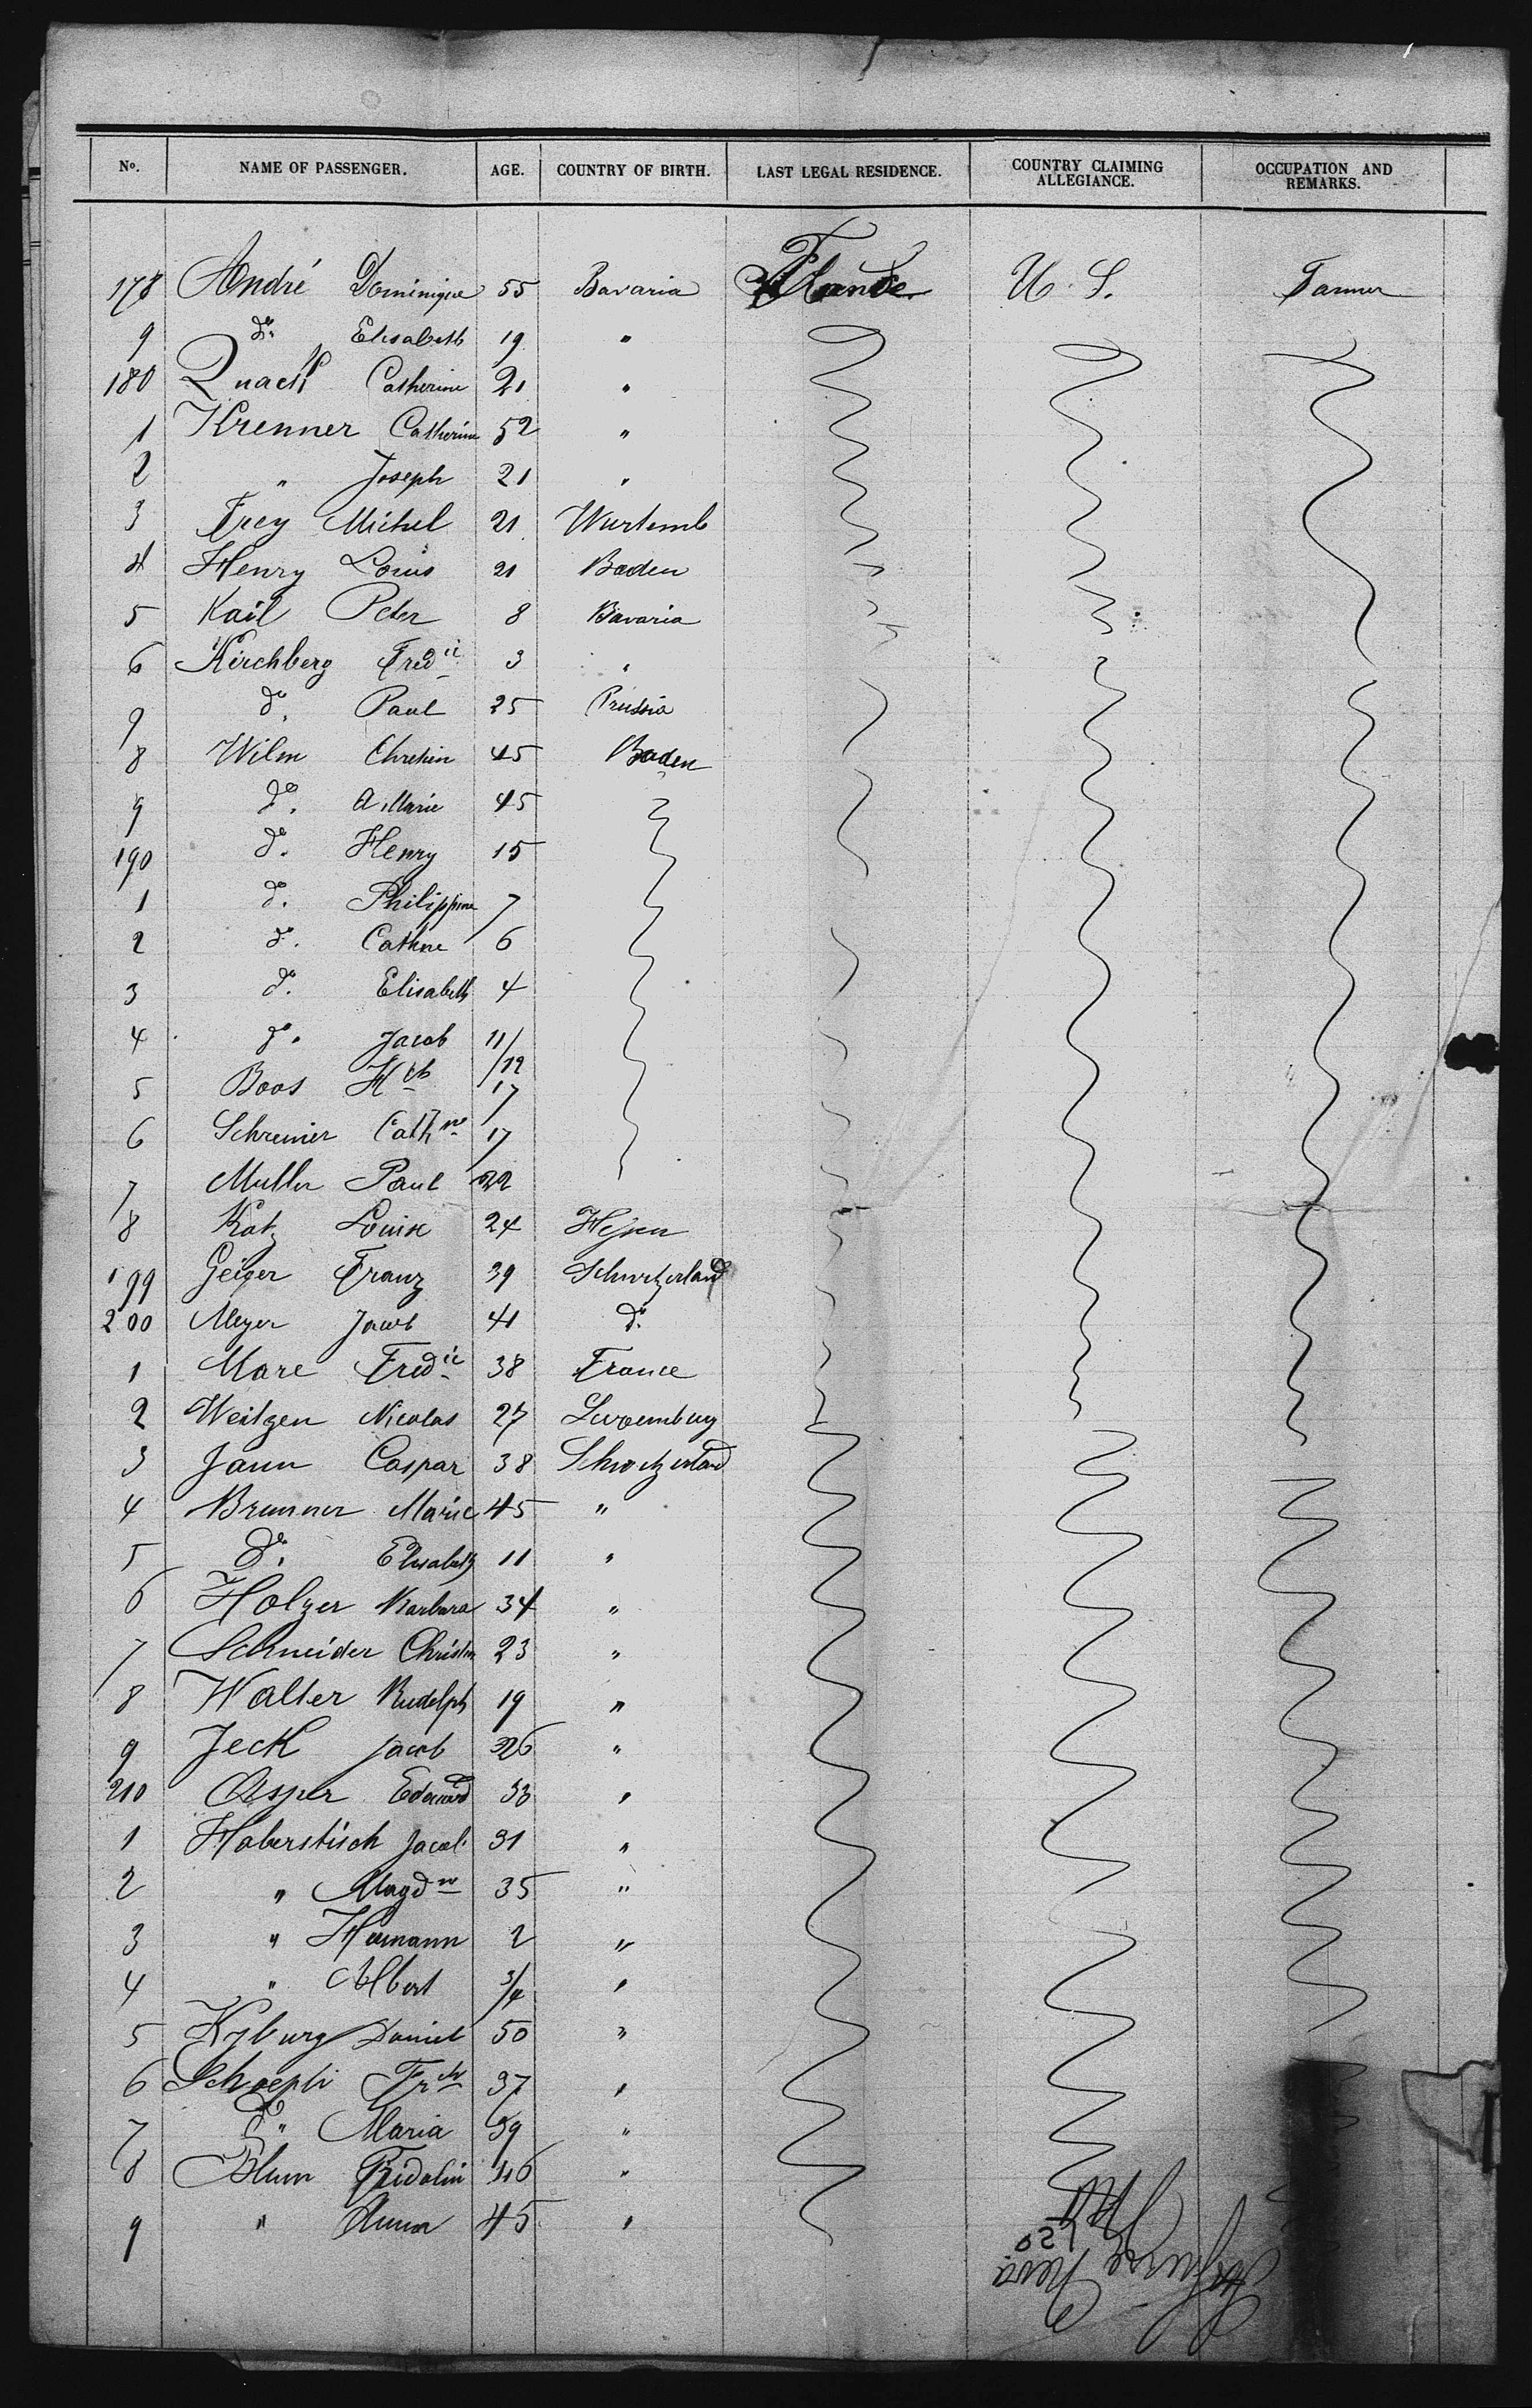 No. NAME OF PASSENGER. AGE. COUNTRY OF BIRTH. LAST LEGAL RESIDENCE. COUNTRY CLAIMING ALLEGIANCE. OCCUPATION AND REMARKS.
178 André Dominique 55 Bavaria U. S.
9 do. Elisabeth 19 "
180 Catherine 21 "
1 Krenner Catherine 52 "
2 " Joseph 21 "
3 Frey Michel 21 Wurtemb
4 Henry Louis 21 Baden
5 Kail Peter 8 Bavaria
6 Kirchberg Fredic 3 "
7 do. Paul 25 Prussia
8 Wilm Chretien 45 Baden
9 do. A. Marie 45
190 do. Henry 15
1 do. Philippine 7
2 do. Cathne 6
3 do. Elisabeth 4
4 do. Jacob 11/12
5 Boos Hch 17
6 Schreiner Cathne 17
7 Muller Paul 22
8 Katz Louise 24 Hessen
199 Geiger Franz 39 Schwitzerland
200 Meyer Jacob 41 do.
1 Mare Fredic 38 France
2 Weitzen Nicolas 27 Luxemburg
3 Jann Caspar 38 Schwitzerland
4 Brunner Marie 45 "
5 do. Elisabeth 11 "
6 Holzer Barbara 34 "
7 Schneider Christin 23 "
8 Walter Rudolph 19 "
9 Jeck Jacob 26 "
210 Asper Edouard 33 "
1 Haberstisch Jacob 31 "
2 " Magdne 35 "
3 " Hermann 2 "
4 " Albert 3/4 "
5 Kyburg Daniel 50 "
6 Schaepli 37 "
7 do. Maria 39 "
8 Blum Fridolin 46 "
9 " Anna 45 "